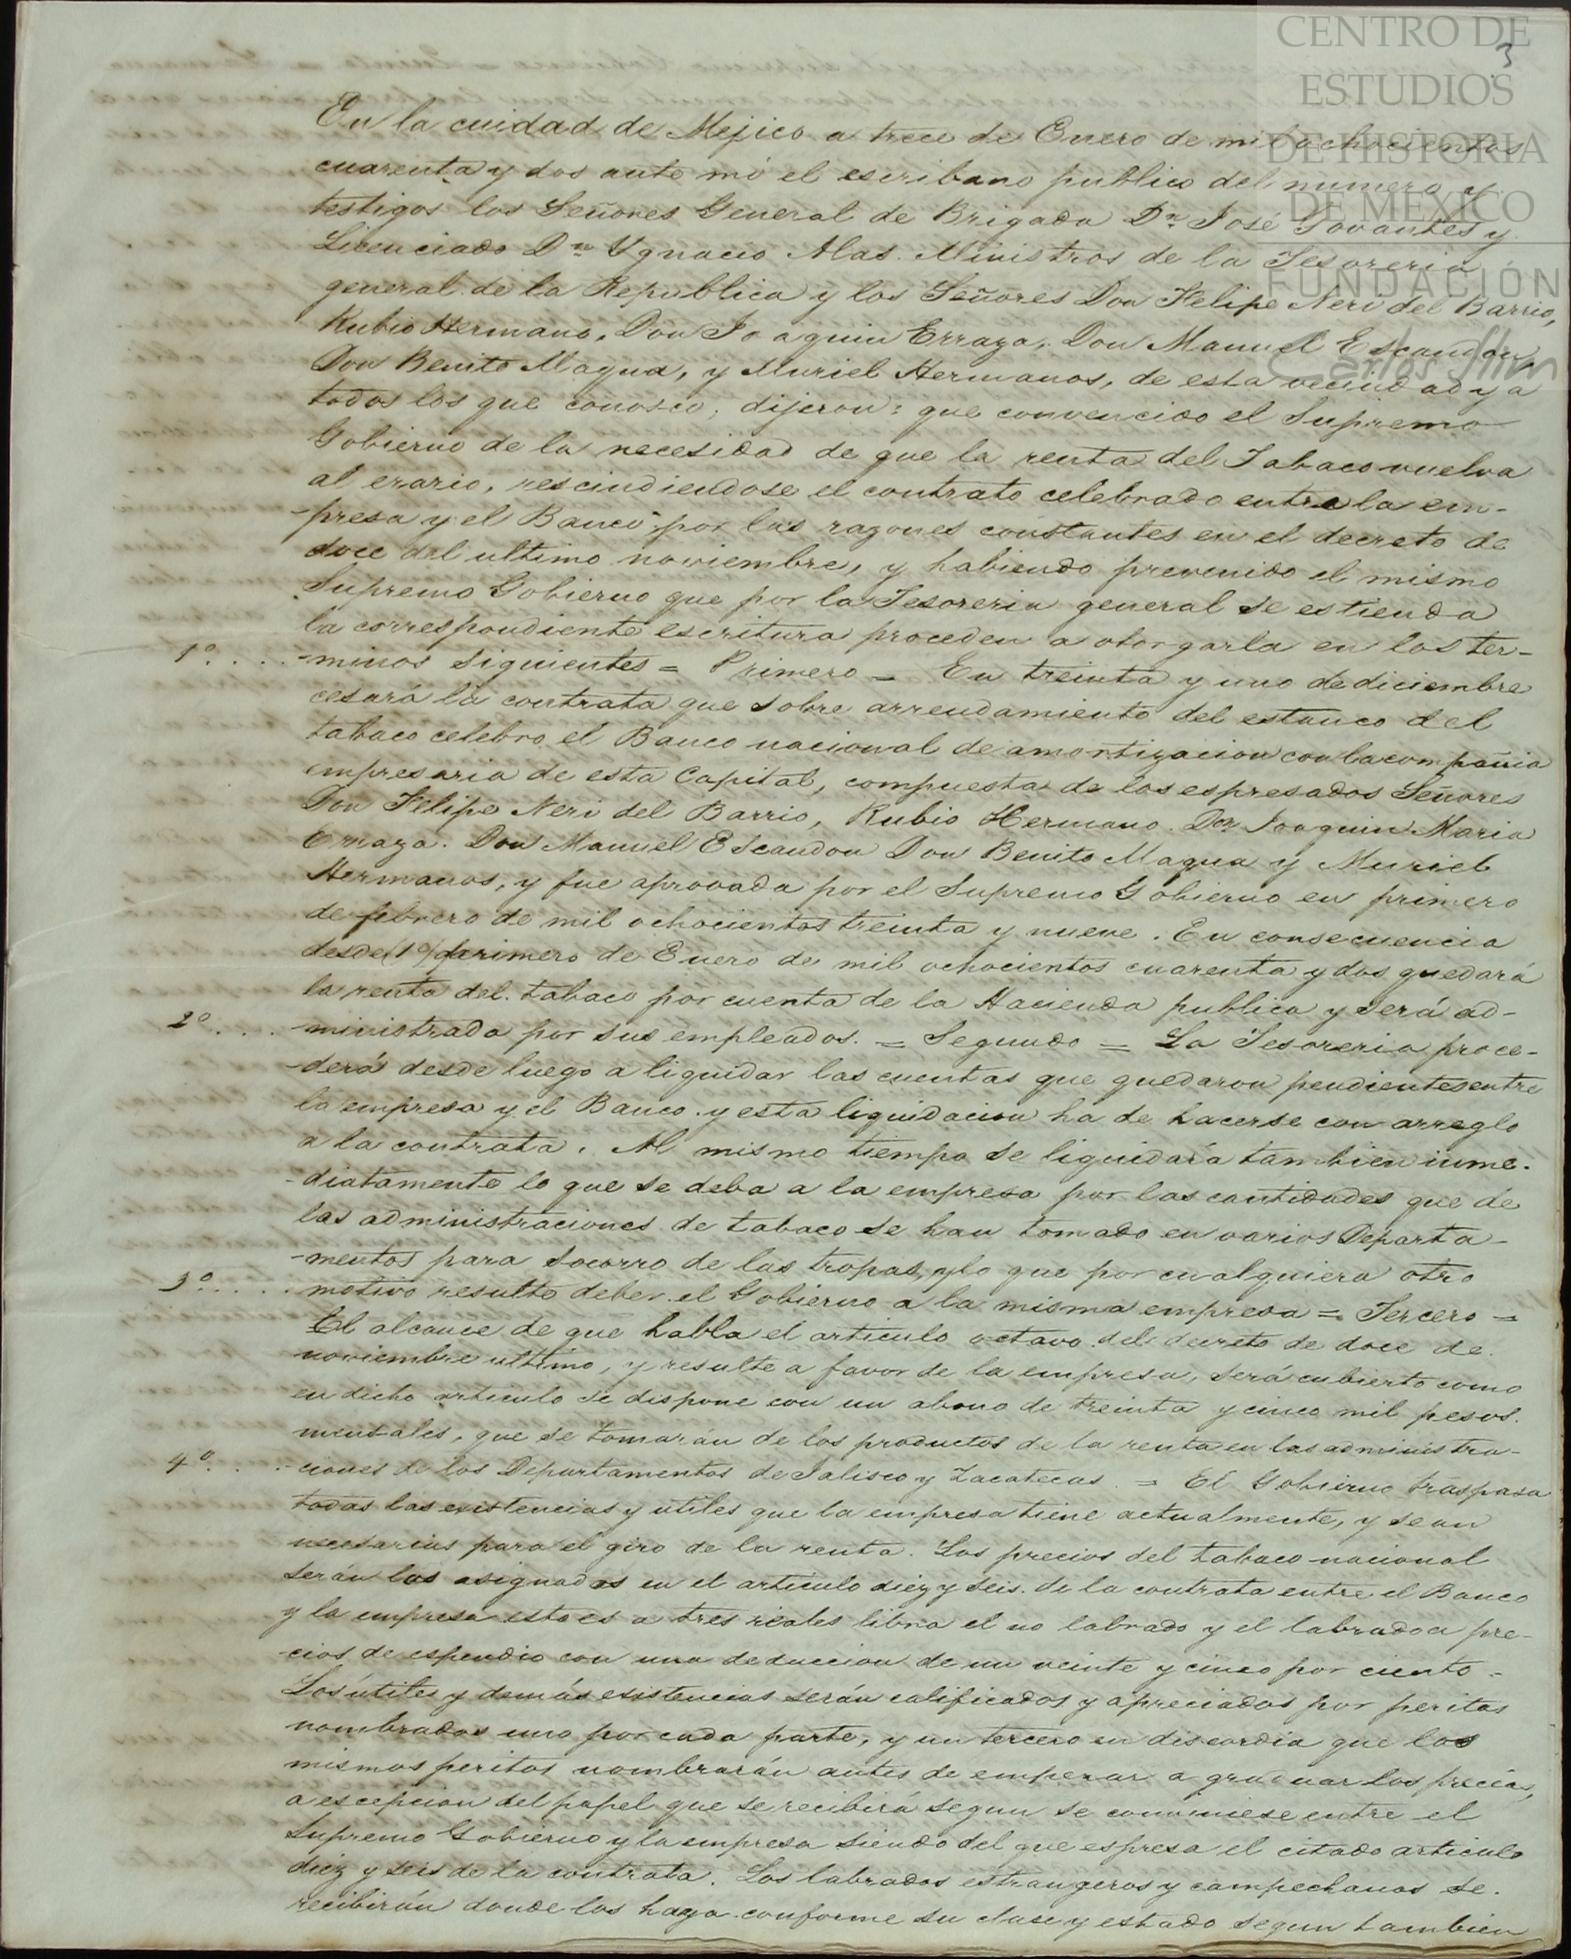 CENTRO DE
ESTUDIOS
DE HISTORIA
DE MEXICO
FUNDACIÓN
Carlos Slim
3
En la cuidad de Mejico a trece de Enero de mil ochocientos
cuarenta y dos ante mi el escribano publico del numero y
testigos los Señores General de Brigada Dn. José Govantes y
Licenciado Dn Ygnacio Alas Ministros de la Tesoreria
general de la Republica y los Señores Don Felipe Neri del Barrio,
Rubio Hermano, Don Joaquin Errazo, Don Manuel Escandon,
Don Benito Magua, y Muriel Hermanos, de esta vecindad y á
todos los que conosco, dijeron: que convencido el Supremo
Gobierno de la necesidad de que la renta del Tabaco vuelva
al erario, rescindiendose el contrato celebrado entre la em-
-presa y el Banco por las razones constantes en el decreto de
doce del ultimo noviembre, y habiendo prevenido el mismo
Supremo Gobierno que por la Tesoreria general se estienda
la correspondiente escritura proceden a otorgarla en los ter-
1º. . . . -minos siguientes = Primero = En treinta y uno de diciembre
cesará la contrata que sobre arrendamiento del estanco del
tabaco celebro el Banco nacional de amortizacion con la compañia
empresaria de esta Capital, compuesta de los espresados Señores
Don Felipe Neri del Barrio, Rubio Hermano. Don Joaquin Maria
Errazo. Don Manuel Escandon Don Benito Magua y Muriel
Hermanos, y fue aprovada por el Supremo Gobierno en primero
de febrero de mil ochocientos treinta y nueve. En consecuencia
desde (1º) primero de Enero de mil ochocientos cuarenta y dos quedará
la renta del tabaco por cuenta de la Hacienda publica y será ad-
2º. . . . -ministrada por sus empleados. = Segundo = La Tesoreria proce-
-derá desde luego a liquidar las cuentas que quedaron pendientes entre
la empresa y el Banco y esta liquidacion ha de hacerse con arreglo
a la contrata. Al mismo tiempo se liquidará tambien inme-
-diatamente lo que se deba a la empresa por las cantidades que de
las administraciones de tabaco se han tomado en varios Departa-
-mentos para socorro de las tropas, y lo que por cualquiera otro
3º. . . . . motivo resulte deber el Gobierno a la misma empresa = Tercero =
El alcance de que habla el articulo octavo del decreto de doce de
noviembre ultimo, y resulte a favor de la empresa, será cubierto como
en dicho articulo se dispone con un abono de treinta y cinco mil pesos.
mensales, que se tomarán de los productos de la renta en las administra-
4º. . . . -ciones de los Departamentos de Jalisco y Zacatecas. = El Gobierno traspasa
todas las existencias y utiles que la empresa tiene actualmente, y sean
necesarias para el giro de la renta. Los precios del tabaco nacional
serán los asignados en el articulo diez y seis de la contrata entre el Banco
y la empresa esto es a tres reales libra el no labrado y el labrado a pre-
-cios de espendio con una deduccion de un veinte y cinco por ciento.
Los útiles y demás existencias serán calificados y apreciados por peritos
nombrados uno por cada parte, y un tercero en discordia que los
mismos peritos nombrarán antes de empezar a graduar los precios,
a escepcion del papel que se recibirá segun se conviniese entre el
Supremo Gobierno y la empresa siendo del que espresa el citado articulo
diez y seis de la contrata. Los labrados estrangeros y campechanos se
recibirán donde los haya conforme su clase y estado segun tambien